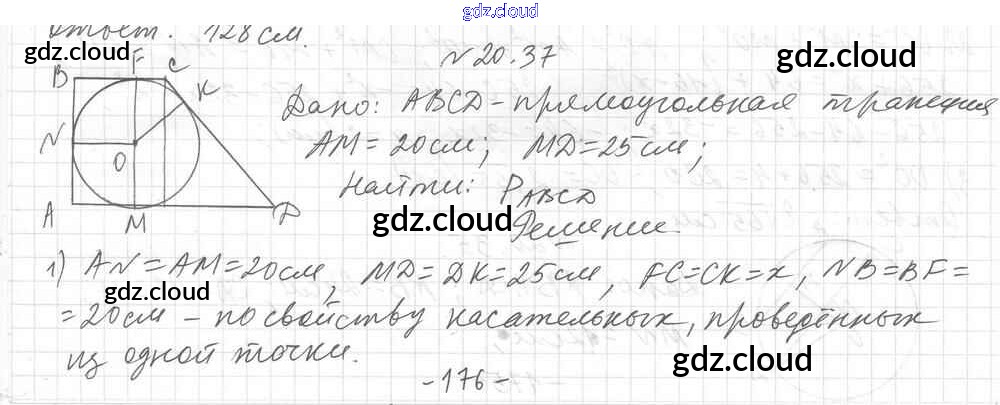 gdz.cloud
Ответ: 128 см.
gdz.cloud
№ 20.37
gdz.cloud
B F C K
N O
A M D
Дано: ABCD - прямоугольная трапеция
AM = 20 см; MD = 25 см;
Найти: P ABCD
gdz.cloud
Решение.
1) AN = AM = 20 см, MD = DK = 25 см, FC = CK = x, NB = BF =
gdz.cloud
= 20 см - по свойству касательных, проведённых
из одной точки.
gdz.cloud
- 176 -